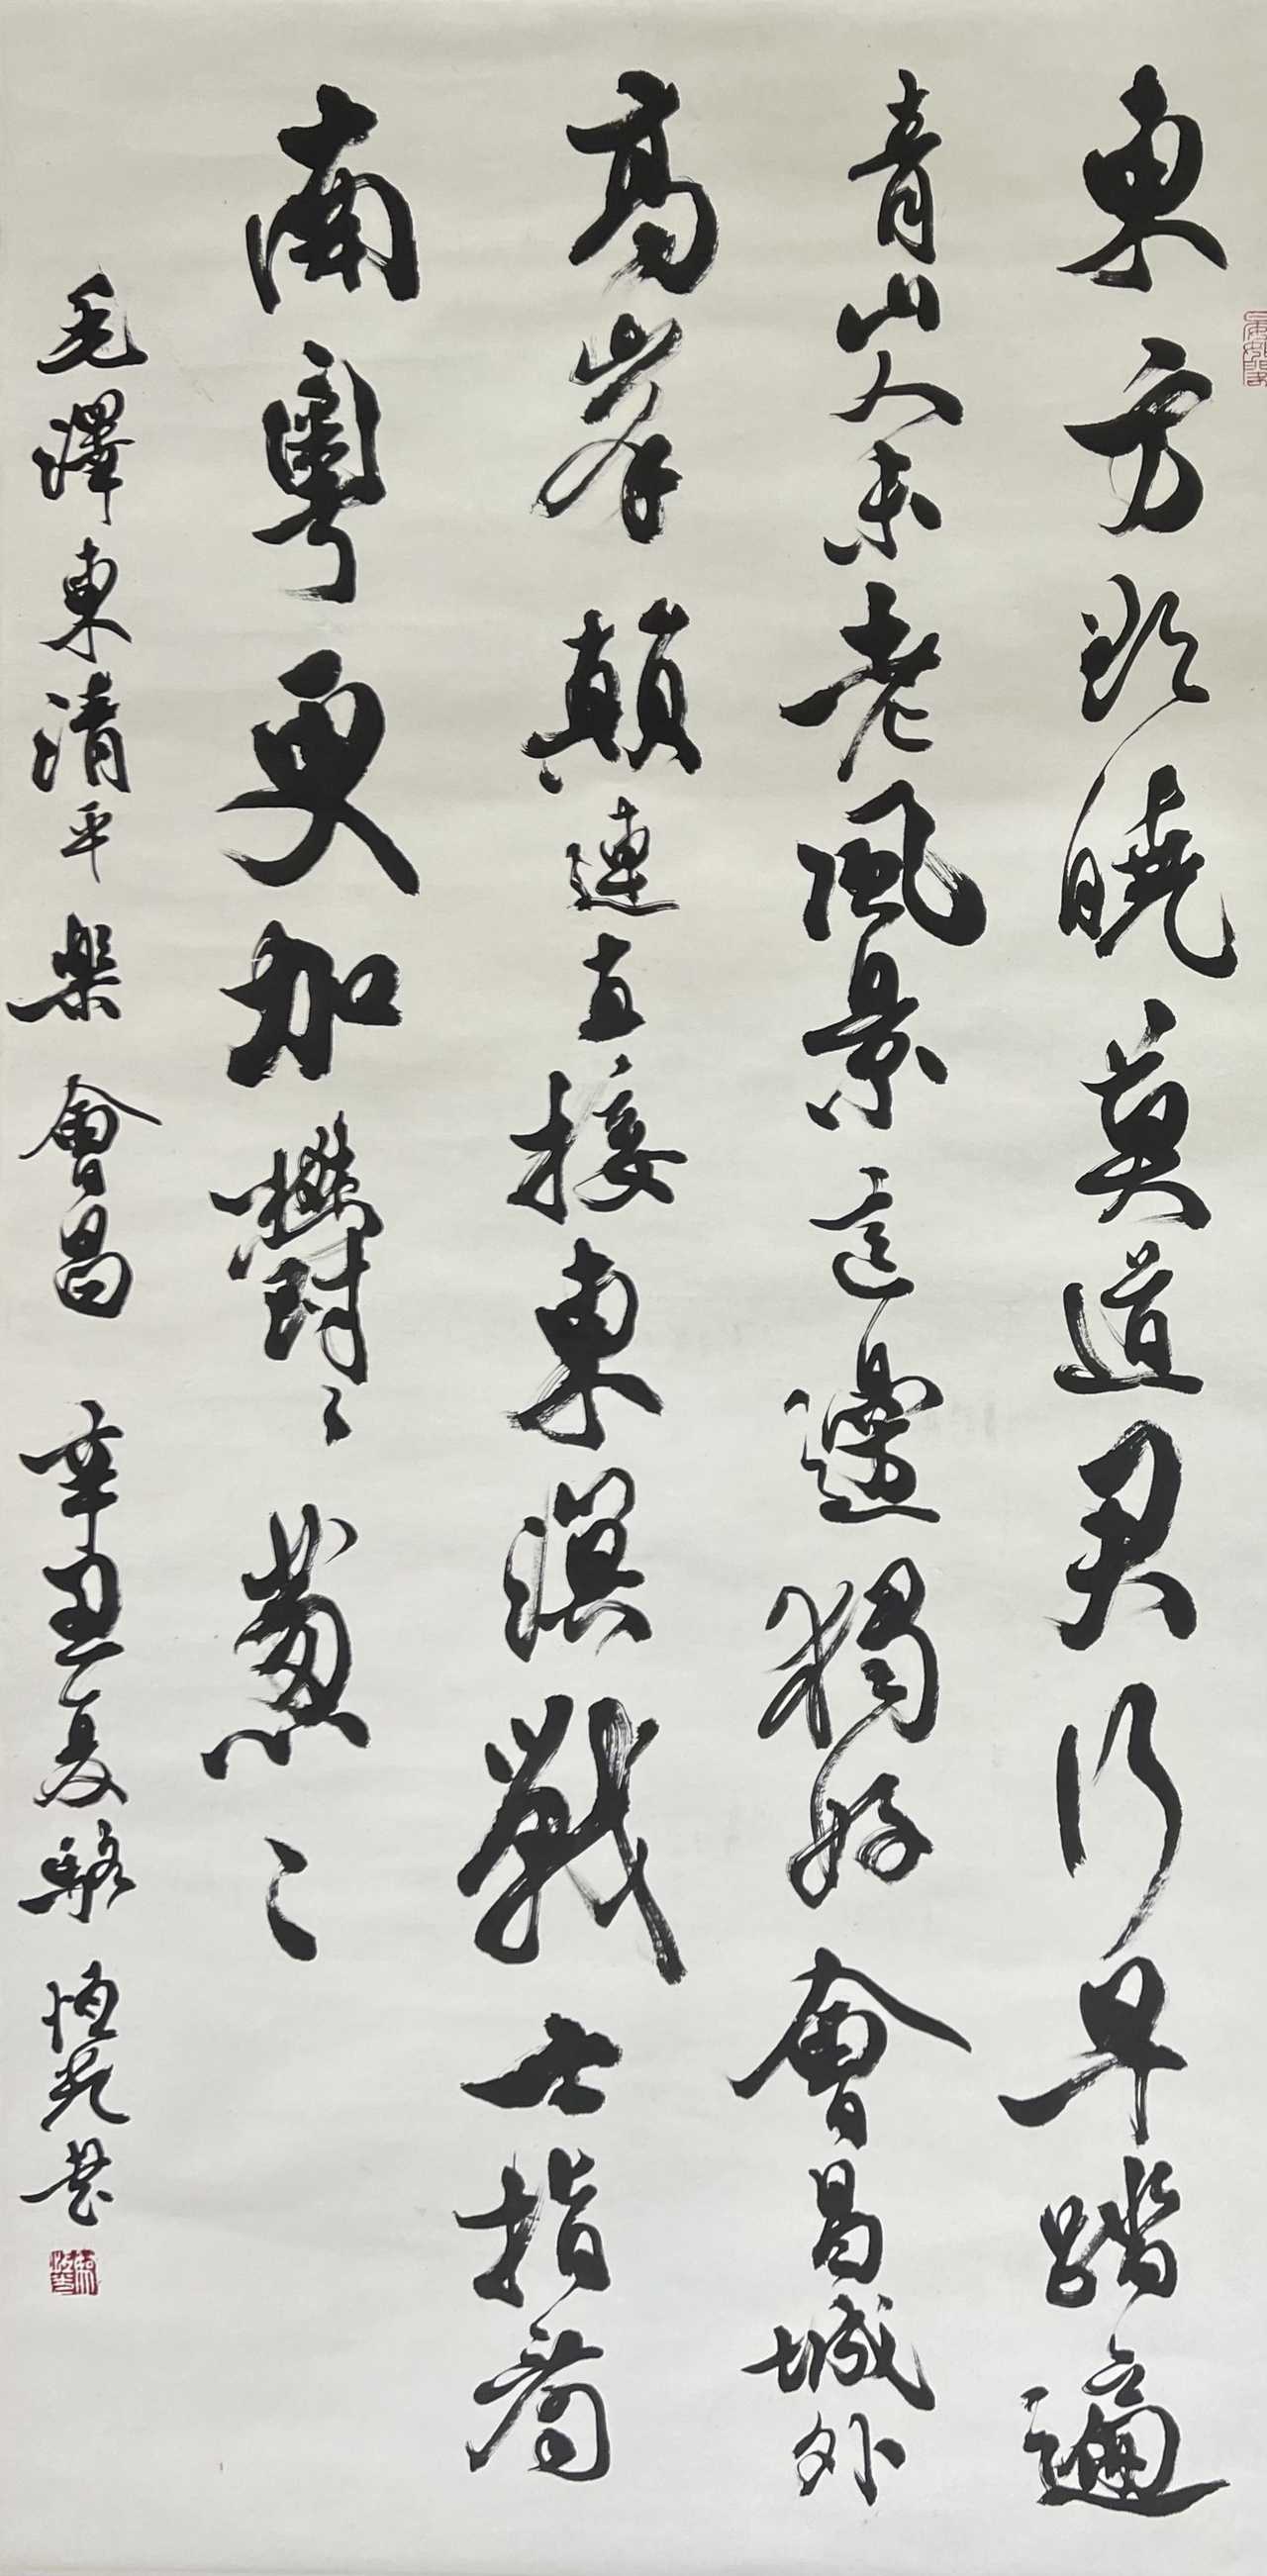 東方欲曉莫道君行早踏遍
青山人未老風景這邊獨好會昌城外
高峯顛連直接東溟戰士指看
南粵更加鬱〻蔥〻
毛澤東清平樂會昌 辛丑夏 駱恒光書